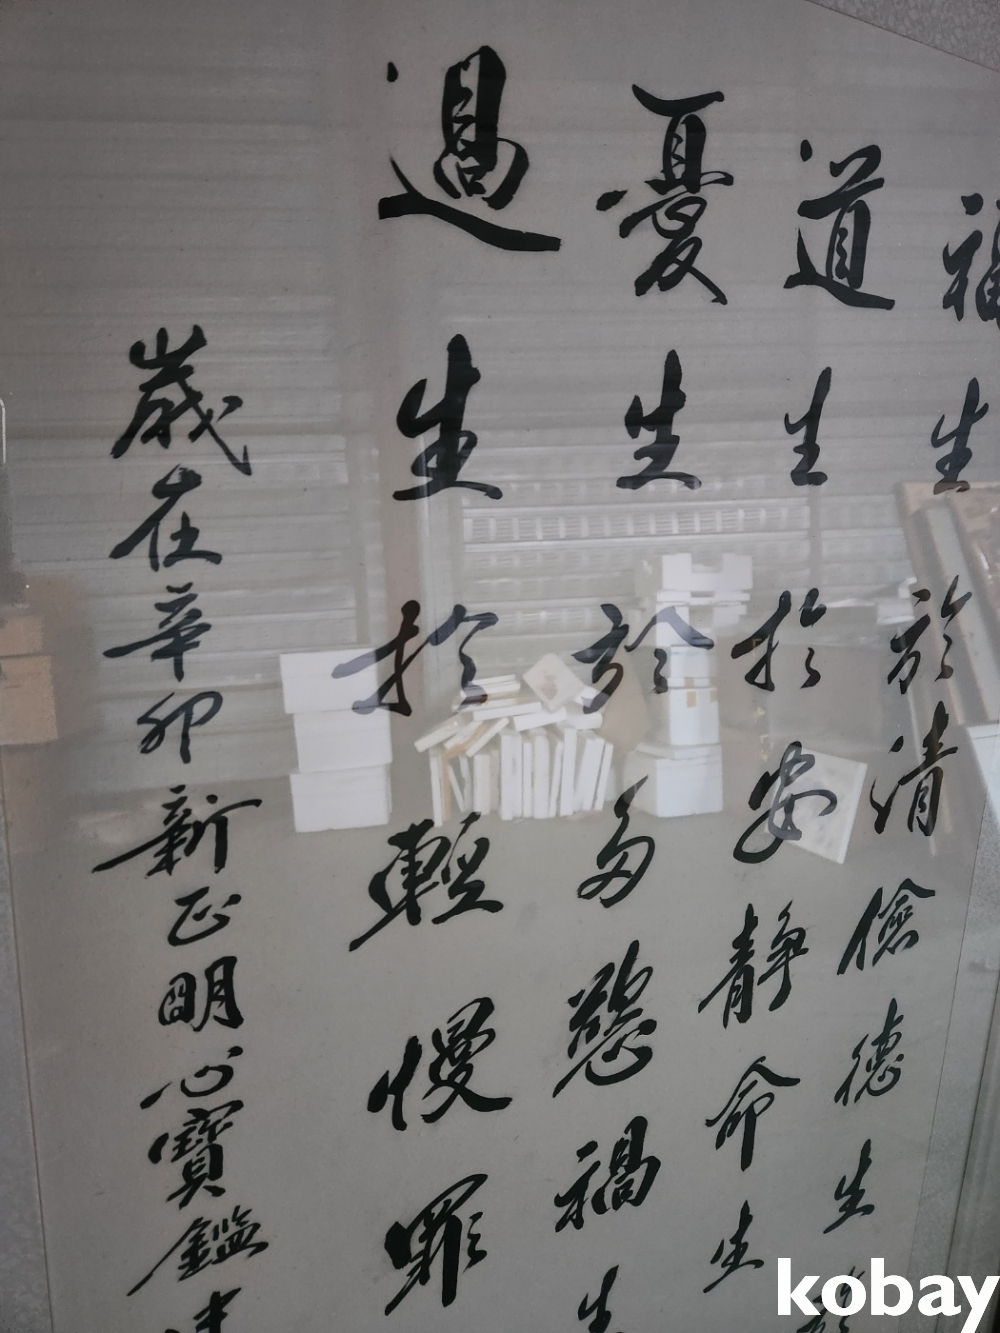 福生於清儉德生於
道生於安靜命生
憂生於多慾禍生
過生於輕慢罪
歲在辛卯新正明心寶鑑
kobay